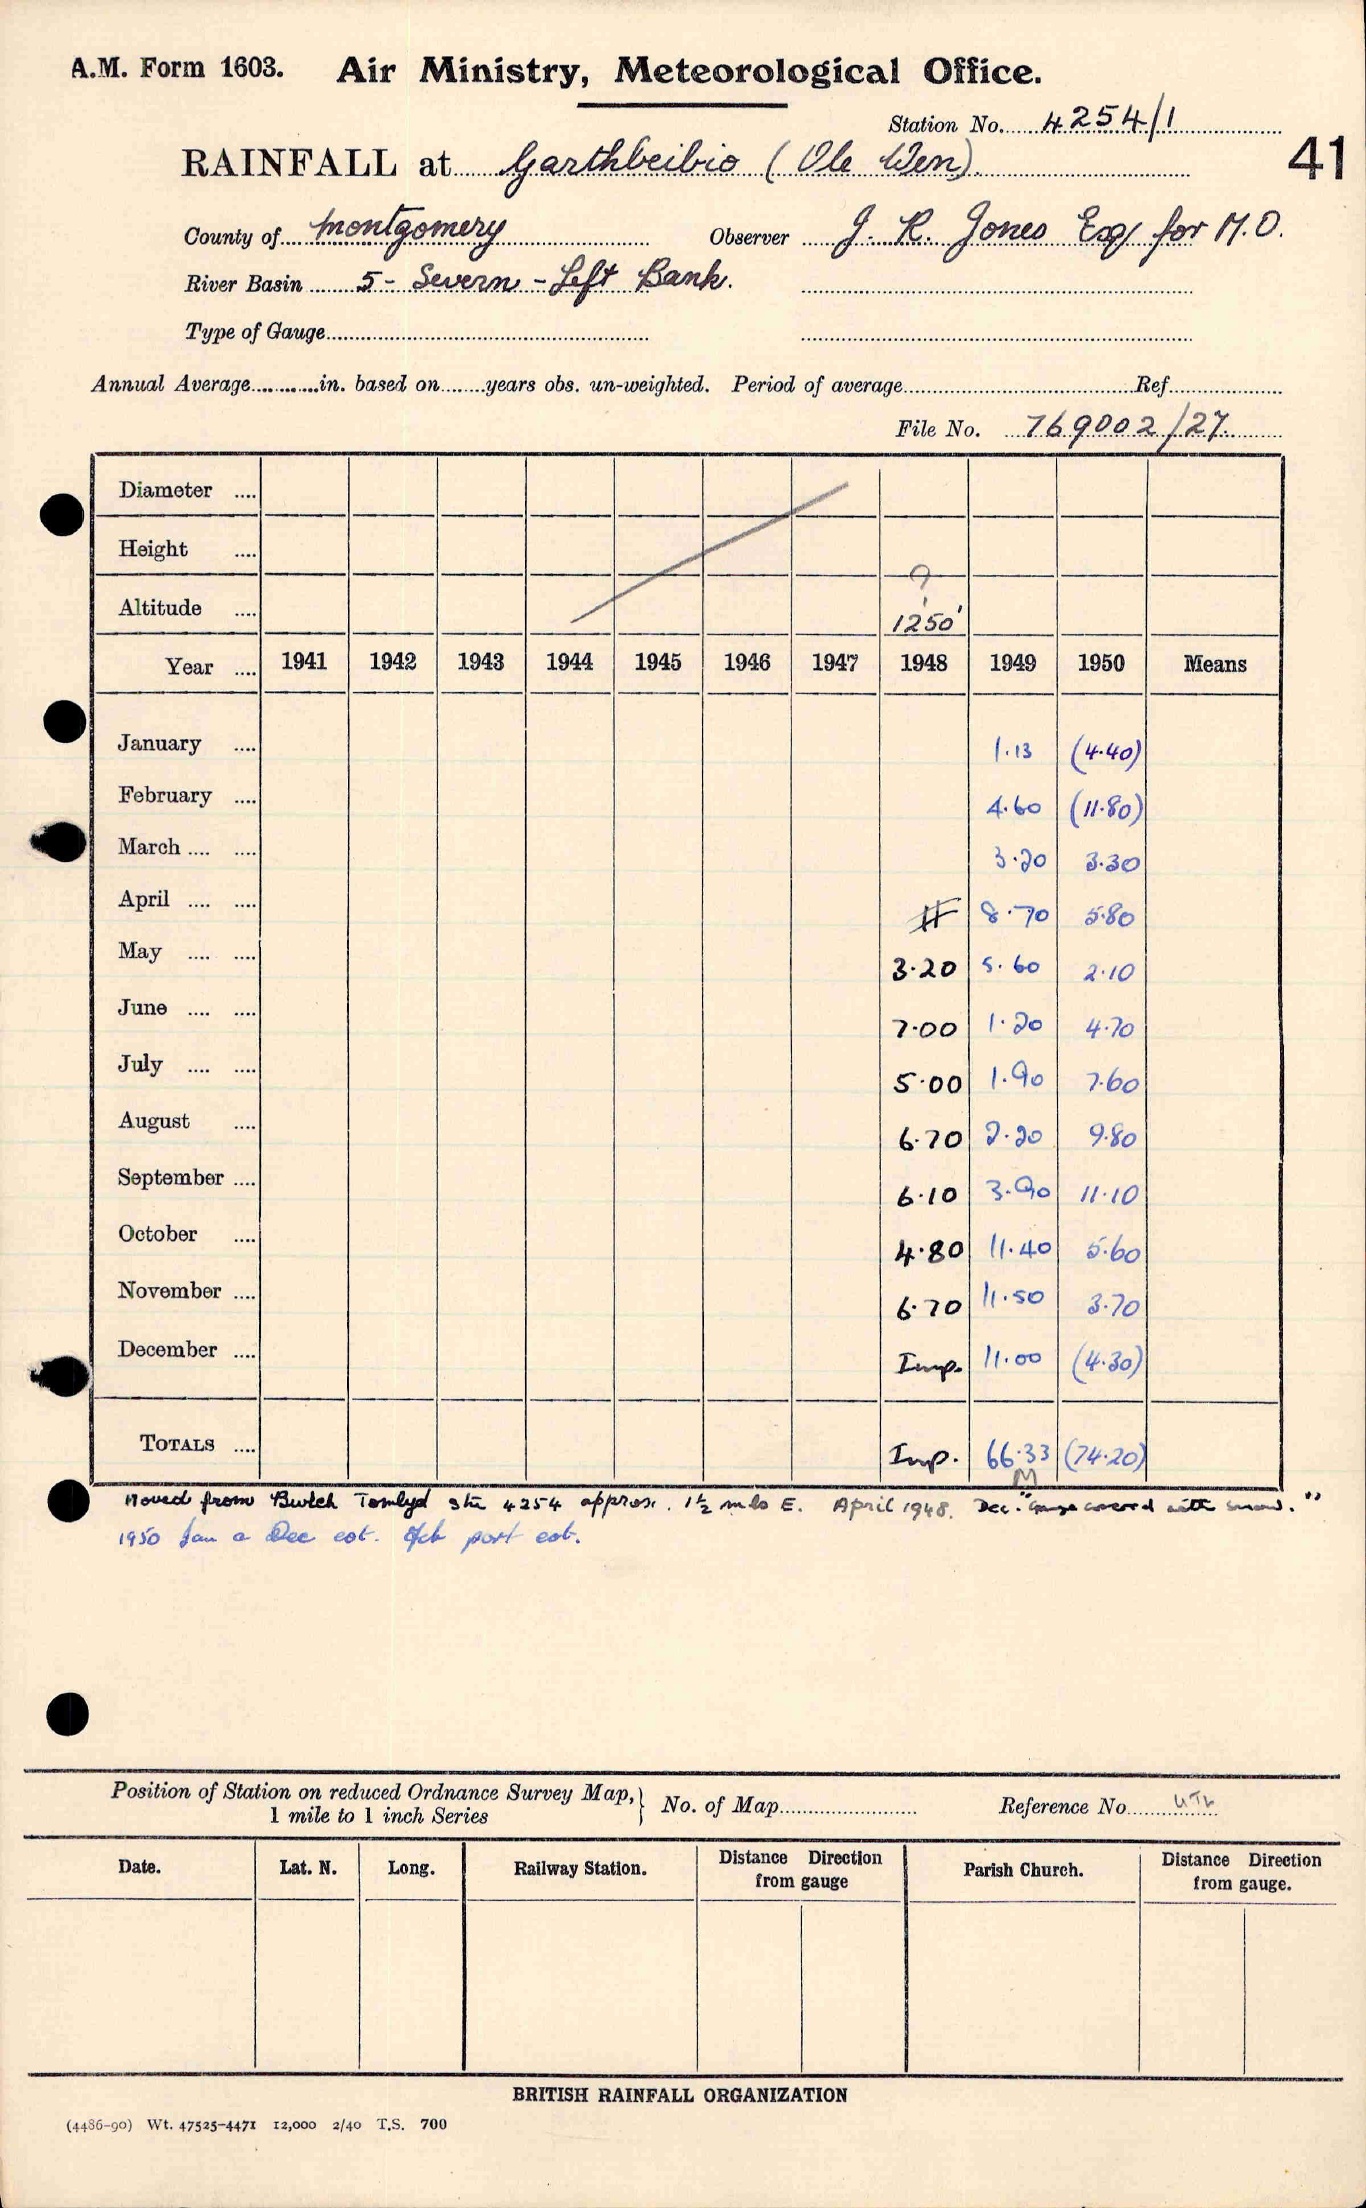 A.M. Form 1603. Air Ministry, Meteorological Office.
Station No. 4254/1
41
RAINFALL at Garthbeibio (Ole Wen).
County of Montgomery Observer J. R. Jones Esq for M.O.
River Basin 5 - Severn - Left Bank.
Type of Gauge
Annual Average in. based on years obs. un-weighted. Period of average Ref
File No. 769002/27
Diameter
Height
?
Altitude 1250'
Year 1941 1942 1943 1944 1945 1946 1947 1948 1949 1950 Means
January 1.13 (4.40)
February 4.60 (11.80)
March 3.20 3.30
April 8.70 5.80
May 3.20 5.60 2.10
June 7.00 1.20 4.70
July 5.00 1.90 7.60
August 6.70 2.20 9.80
September 6.10 3.90 11.10
October 4.80 11.40 5.60
November 6.70 11.50 3.70
December Imp. 11.00 (4.30)
TOTALS Imp. 66.33 (74.20)
M
Moved from Bwlch 4254 approx. 1½ mls E. April 1948. Dec. "Gauge covered with snow."
1950 Jan & Dec est. Feb part est.
Position of Station on reduced Ordnance Survey Map, 1 mile to 1 inch Series } No. of Map Reference No.
Date. Lat. N. Long. Railway Station. Distance Direction from gauge Parish Church. Distance Direction from gauge.
BRITISH RAINFALL ORGANIZATION
(4486-90) Wt. 47525-4471 12,000 2/40 T.S. 700